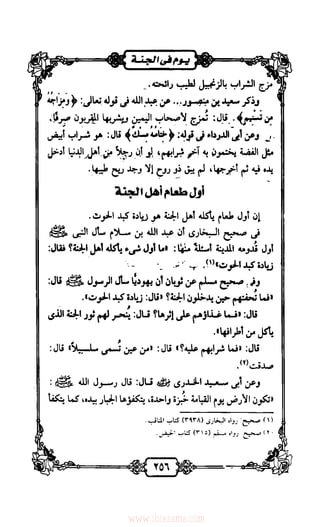 يوم فى الجنة
مزج الشراب بالزنجبيل لطيب رائحته.
وذكر سعيد بن منصور... عن عبد الله فى قوله تعالى: ﴿وَمِزَاجُهُ
مِن تَسْنِيمٍ﴾. قال: تُمزج لأصحاب اليمين ويشربها المقربون صرفًا.
وعن أبى الدرداء فى قوله: ﴿خِتَامُهُ مِسْكٌ﴾ قال: هو شراب أبيض
مثل الفضة يختمون به آخر شرابهم، لو أن رجلاً من أهل الدنيا أدخل
يده فيه ثم أخرجها، لم يبق ذو روح إلا وجد ريح طيبها.
أول طعام أهل الجنة
إن أول طعام يأكله أهل الجنة هو زيادة كبد الحوت.
فى صحيح البخارى أن عبد الله بن سلام سأل النبى ﷺ
أول قدومه المدينة أسئلة منها: «ما أول شىء يأكله أهل الجنة؟ فقال:
زيادة كبد الحوت»(١).
وفى صحيح مسلم عن ثوبان أن يهوديًا سأل الرسول ﷺ قال:
«فما تُحفتهم حين يدخلون الجنة؟ قال: زيادة كبد الحوت».
قال: «فما غذاؤهم على إثرها؟ قال: يُنحر لهم ثور الجنة الذى
يأكل من أطرافها».
قال: «فما شرابهم عليه؟» قال: «من عين تُسمى سلسبيلاً» قال:
صدقت(٢).
وعن أبى سعيد الخدرى ﷺ قال: قال رسول الله ﷺ:
«تكون الأرض يوم القيامة خُبزة واحدة، يتكفؤها الجبار بيده، كما يتكفأ
(١) صحيح: رواه البخارى (٣٩٣٨) كتاب المناقب.
(٢) صحيح: رواه مسلم (٣١٥) كتاب الحيض.
٢٥٦
www.ibtesama.com